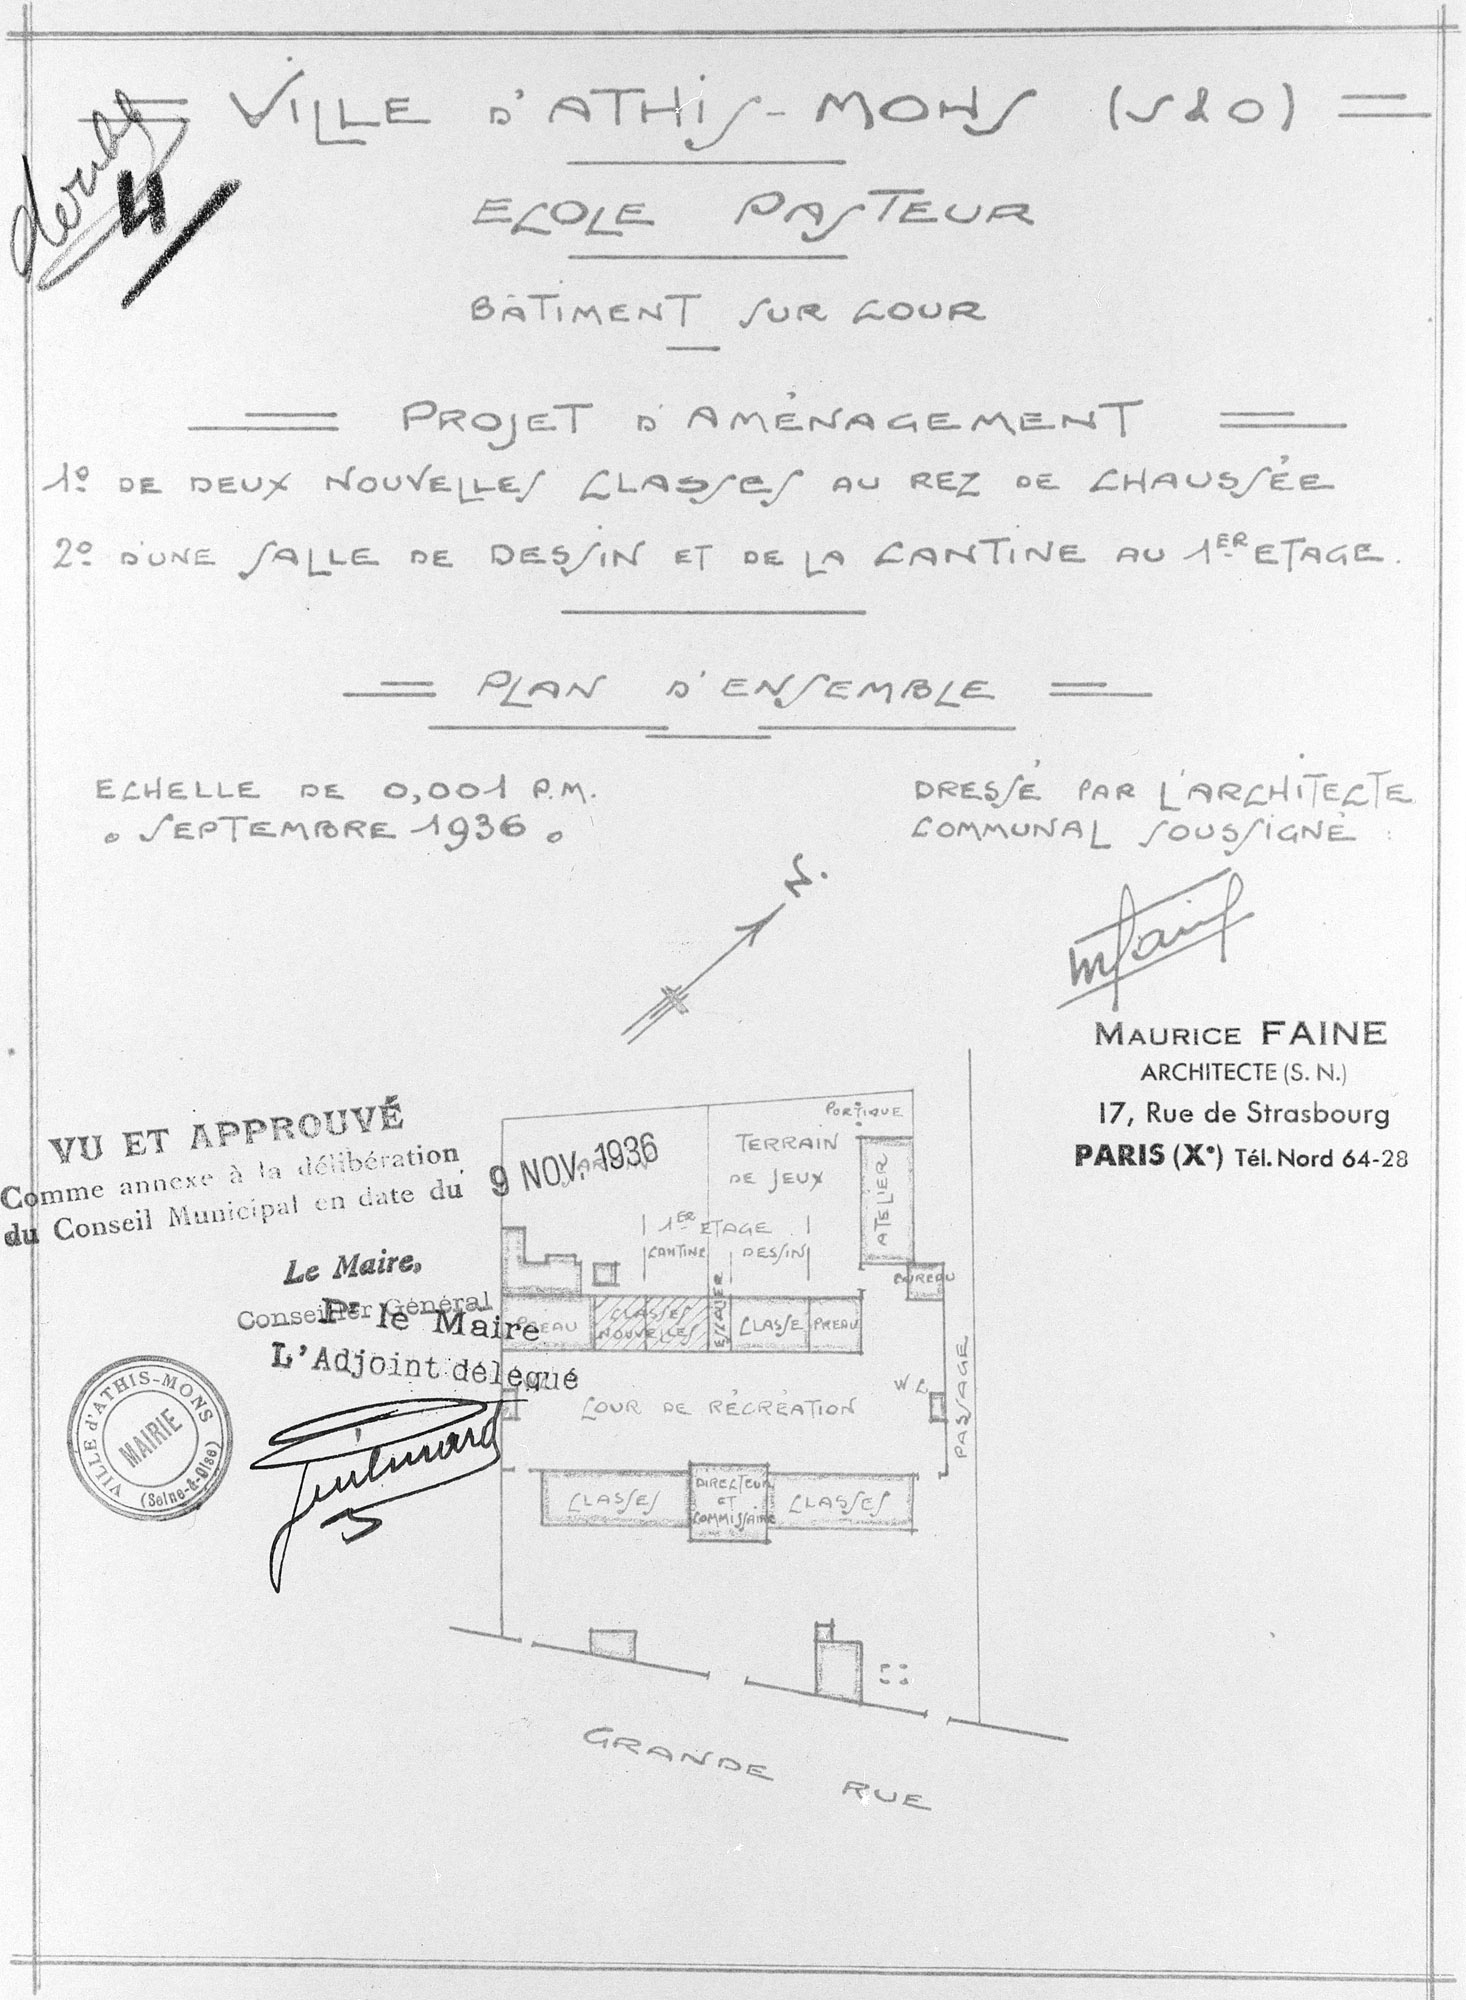 VILLE D'ATHIS-MONS (S & O)
4
ECOLE PASTEUR
BÂTIMENT SUR COUR
PROJET D'AMÉNAGEMENT
1º DE DEUX NOUVELLES CLASSES AU REZ DE CHAUSSÉE
2º D'UNE SALLE DE DESSIN ET DE LA CANTINE AU 1ER ETAGE.
PLAN D'ENSEMBLE
ECHELLE DE 0,001 P.M.
SEPTEMBRE 1936
DRESSÉ PAR L'ARCHITECTE
COMMUNAL SOUSSIGNÉ :
N.
MAURICE FAINE
ARCHITECTE (S. N.)
17, Rue de Strasbourg
PARIS (Xe) Tél. Nord 64-28
VU ET APPROUVÉ
Comme annexe à la délibération
du Conseil Municipal en date du
9 NOV. 1936
Le Maire,
Conseiller Général
Pr le Maire
L'Adjoint délégué
VILLE d'ATHIS-MONS
MAIRIE
(Seine-&-Oise)
PORTIQUE
TERRAIN
DE JEUX
ATELIER
1ER ETAGE
CANTINE
DESSIN
BUREAU
PREAU
CLASSES
NOUVELLES
ESCALIER
CLASSE
PREAU
W C.
COUR DE RÉCRÉATION
PASSAGE
CLASSES
DIRECTEUR
ET
COMMISSAIRE
CLASSES
GRANDE RUE